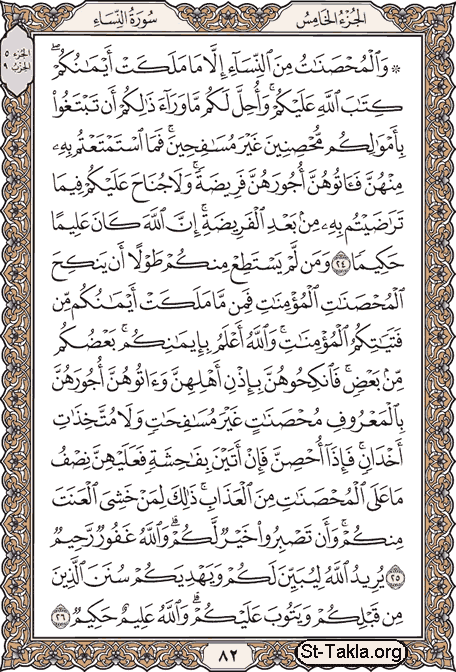 الجُزْءُ الخَامِسُ سُورَةُ النِّسَاءِ
الجزء ٥
الحزب ٩
۞ وَٱلْمُحْصَنَٰتُ مِنَ ٱلنِّسَآءِ إِلَّا مَا مَلَكَتْ أَيْمَٰنُكُمْۖ
كِتَٰبَ ٱللَّهِ عَلَيْكُمْۚ وَأُحِلَّ لَكُم مَّا وَرَآءَ ذَٰلِكُمْ أَن تَبْتَغُوا۟
بِأَمْوَٰلِكُم مُّحْصِنِينَ غَيْرَ مُسَٰفِحِينَۚ فَمَا ٱسْتَمْتَعْتُم بِهِۦ
مِنْهُنَّ فَـَٔاتُوهُنَّ أُجُورَهُنَّ فَرِيضَةًۚ وَلَا جُنَاحَ عَلَيْكُمْ فِيمَا
تَرَٰضَيْتُم بِهِۦ مِنۢ بَعْدِ ٱلْفَرِيضَةِۚ إِنَّ ٱللَّهَ كَانَ عَلِيمًا
حَكِيمًا ٢٤ وَمَن لَّمْ يَسْتَطِعْ مِنكُمْ طَوْلًا أَن يَنكِحَ
ٱلْمُحْصَنَٰتِ ٱلْمُؤْمِنَٰتِ فَمِن مَّا مَلَكَتْ أَيْمَٰنُكُم مِّن
فَتَيَٰتِكُمُ ٱلْمُؤْمِنَٰتِۚ وَٱللَّهُ أَعْلَمُ بِإِيمَٰنِكُمۚ بَعْضُكُم
مِّنۢ بَعْضٍۚ فَٱنكِحُوهُنَّ بِإِذْنِ أَهْلِهِنَّ وَءَاتُوهُنَّ أُجُورَهُنَّ
بِٱلْمَعْرُوفِ مُحْصَنَٰتٍ غَيْرَ مُسَٰفِحَٰتٍ وَلَا مُتَّخِذَٰتِ
أَخْدَانٍۚ فَإِذَآ أُحْصِنَّ فَإِنْ أَتَيْنَ بِفَٰحِشَةٍ فَعَلَيْهِنَّ نِصْفُ
مَا عَلَى ٱلْمُحْصَنَٰتِ مِنَ ٱلْعَذَابِۚ ذَٰلِكَ لِمَنْ خَشِىَ ٱلْعَنَتَ
مِنكُمْۚ وَأَن تَصْبِرُوا۟ خَيْرٌ لَّكُمْۗ وَٱللَّهُ غَفُورٌ رَّحِيمٌ
٢٥ يُرِيدُ ٱللَّهُ لِيُبَيِّنَ لَكُمْ وَيَهْدِيَكُمْ سُنَنَ ٱلَّذِينَ
مِن قَبْلِكُمْ وَيَتُوبَ عَلَيْكُمْۗ وَٱللَّهُ عَلِيمٌ حَكِيمٌ ٢٦
٨٢
St-Takla.org